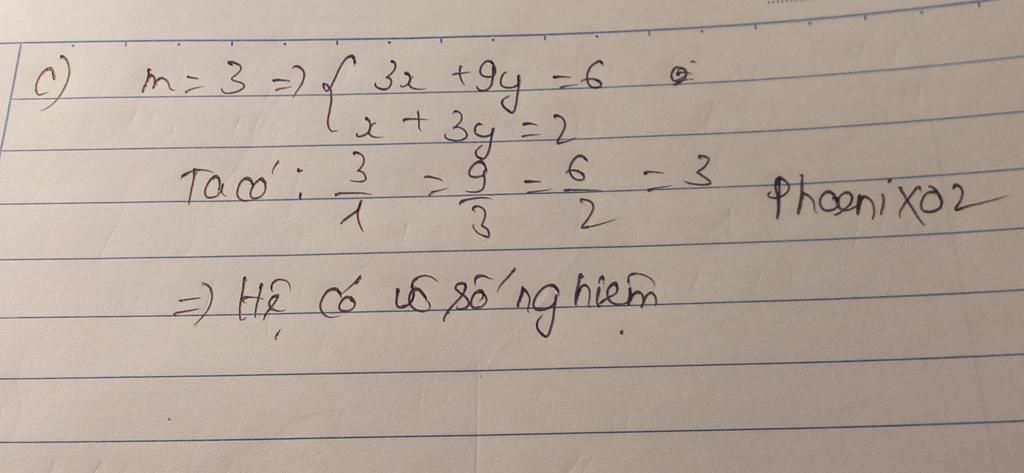 c) m = 3 => { 3x + 9y = 6
x + 3y = 2
Ta có: 3/1 = 9/3 = 6/2 = 3 Phoenix02
=> Hệ có vô số nghiệm